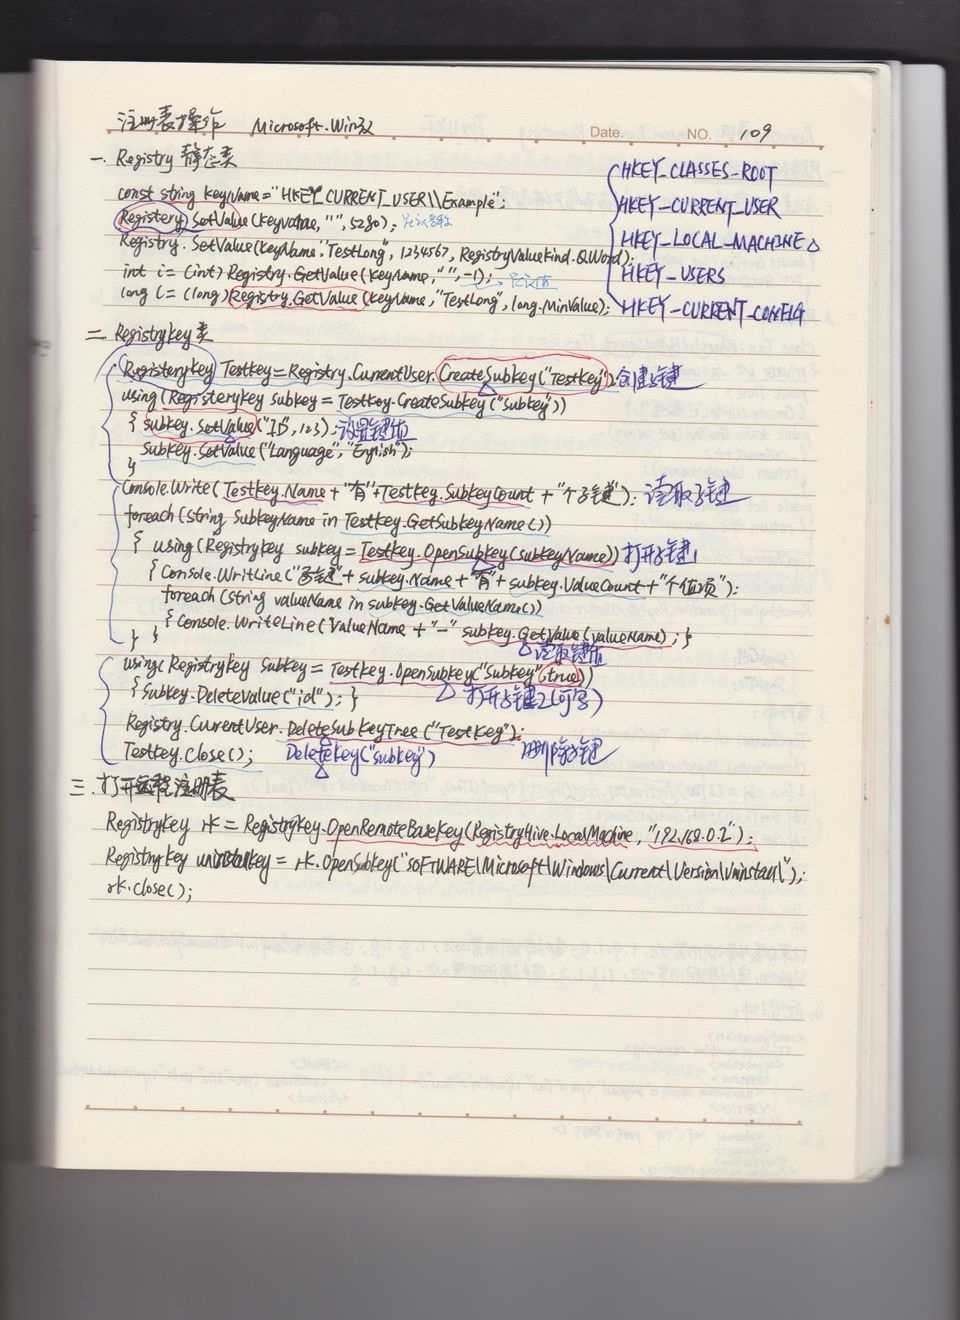 注册表操作 Microsoft.Win32
Date. NO. 109
一. Registry 静态类
const string keyName="HKEY_CURRENT_USER\\Example";
Registery.SetValue(keyName, "", 5280); 默认名称
Registry.SetValue(keyName,"TestLong", 1234567, RegistryValueKind.QWord);
int i=(int)Registry.GetValue(keyName,"",-1);
long l=(long)Registry.GetValue(keyName,"TestLong",long.MinValue);
HKEY_CLASSES_ROOT
HKEY_CURRENT_USER
HKEY_LOCAL_MACHINE △
HKEY_USERS
HKEY_CURRENT_CONFIG
二. RegistryKey类
RegisteryKey TestKey=Registry.CurrentUser.CreateSubkey("TestKey"); 创建子键
using(RegisteryKey subkey=TestKey.CreateSubKey("subkey"))
{ subkey.SetValue("ID",123); 设置键值
subkey.SetValue("Language","English");
}
Console.Write(TestKey.Name+"有"+TestKey.SubkeyCount+"个子键"); 读取子键
foreach(string SubkeyName in TestKey.GetSubkeyName())
{ using(RegistryKey subkey=TestKey.OpenSubkey(subkeyName)) 打开子键
{ Console.WritLine("子键"+subkey.Name+"有"+subkey.ValueCount+"个值项");
foreach(string valueName in subkey.GetValueName())
{ Console.WriteLine(ValueName+"-" subkey.GetValue(valueName); }
} } 读取键值
using(RegistryKey subkey=TestKey.OpenSubkey("Subkey",true))
{ Subkey.DeleteValue("id"); } 打开子键2(可写)
Registry.CurrentUser.DeleteSubKeyTree("TestKey");
TestKey.Close(); DeleteKey("subkey") 删除子键
三. 打开远程注册表
RegistryKey rk=RegistryKey.OpenRemoteBaseKey(RegistryHive.LocalMachine,"192.168.0.2");
RegistryKey uninstallkey=rk.OpenSubkey("SOFTWARE\Microsoft\Windows\Current\Version\Uninstall\");
rk.close();